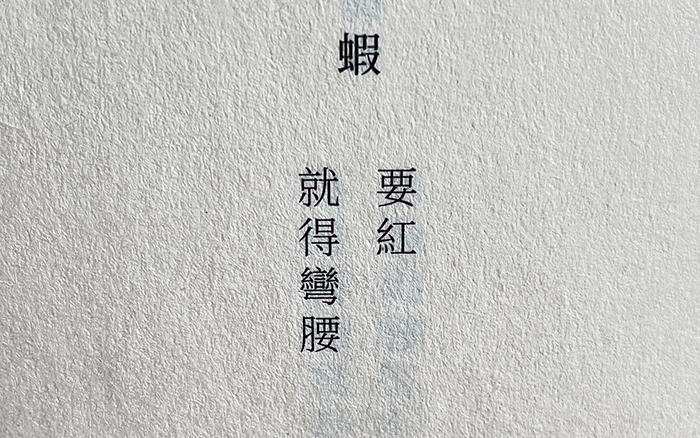 蝦
要紅
就得彎腰